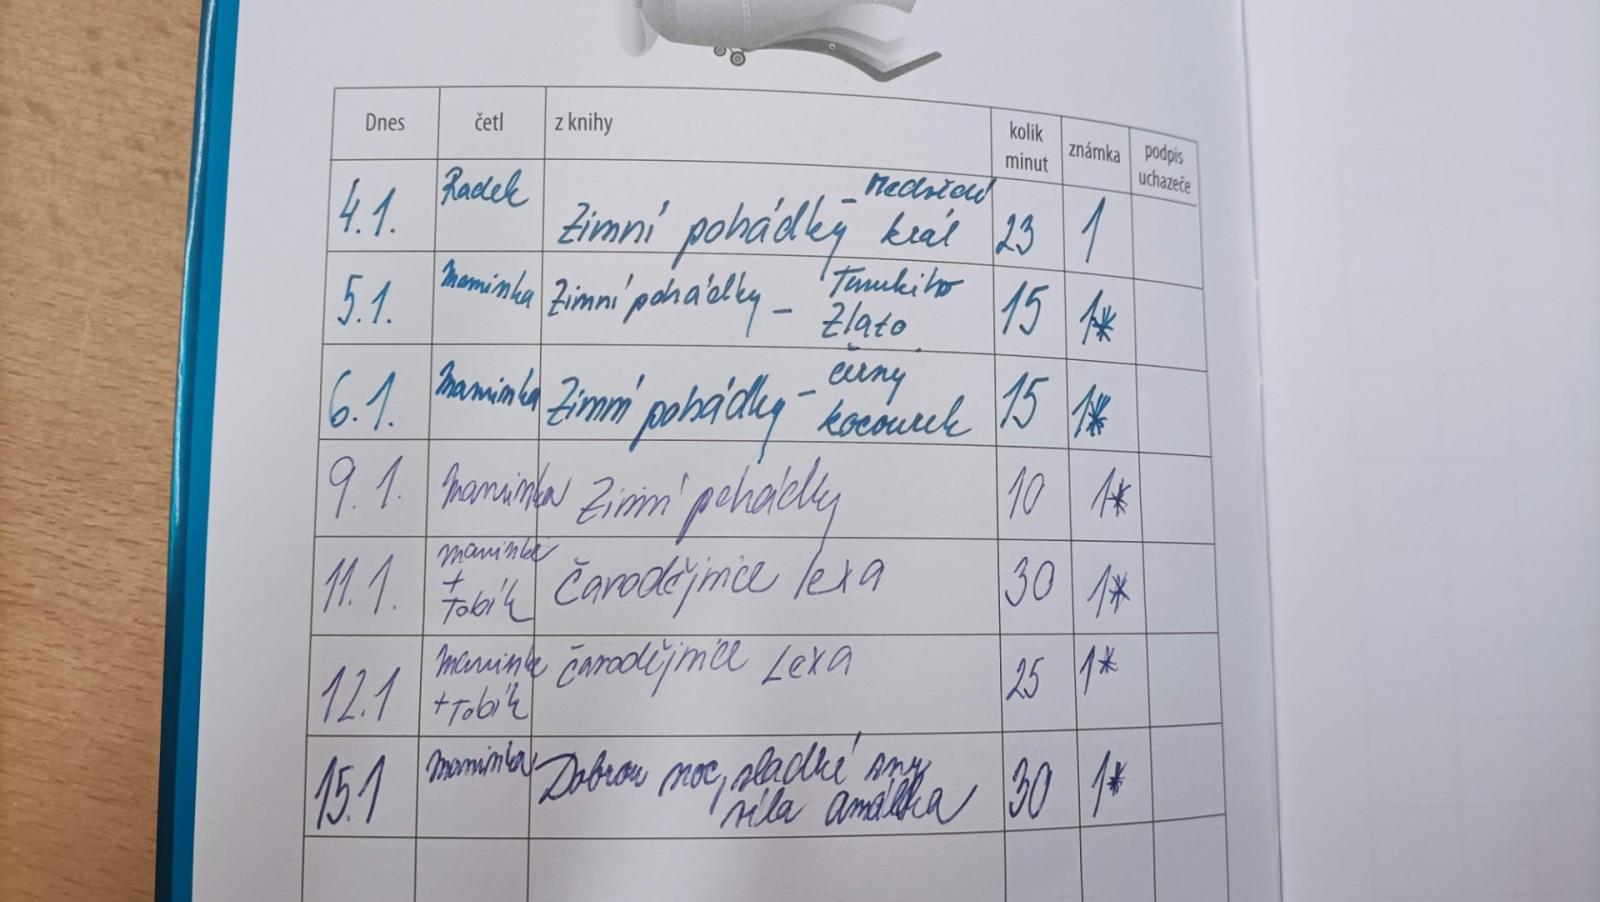 Dnes četl z knihy kolik minut známka podpis uchazeče
4.1. Radek Zimní pohádky - Medvědí král 23 1
5.1. Maminka Zimní pohádky - Zlato 15 1*
6.1. Maminka Zimní pohádky - černý kocourek 15 1*
9.1. Maminka Zimní pohádky 10 1*
11.1. maminka + Tobík Čarodějnice lexa 30 1*
12.1 maminka + Tobík čarodějnice Lexa 25 1*
15.1 maminka Dobrou noc, sladké sny víla amálka 30 1*